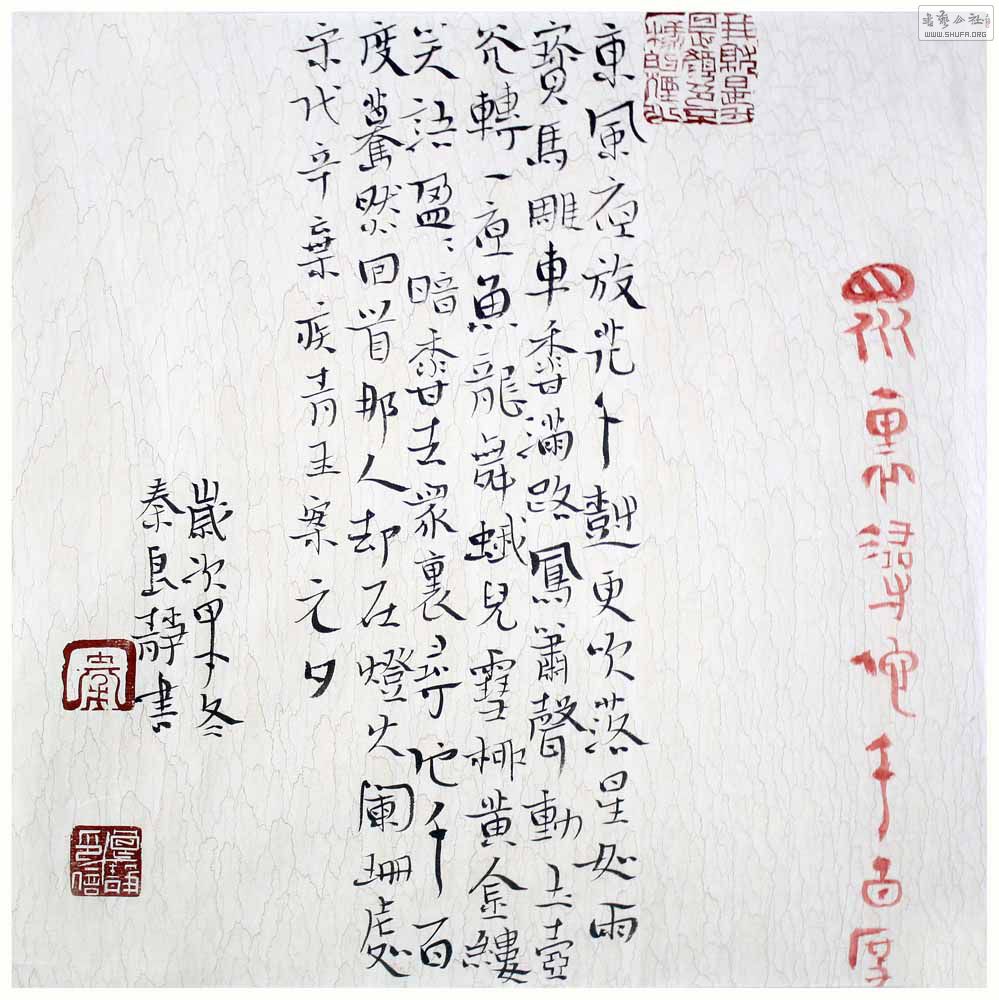 眾裏尋他千百度
東風夜放花千樹更吹落星如雨
寶馬雕車香滿路鳳簫聲動玉壺
光轉一夜魚龍舞蛾兒雪柳黃金縷
笑語盈〻暗香去眾裏尋他千百
度驀然回首那人却在燈火闌珊處
宋代辛棄疾青玉案元夕
歲次甲午冬
秦良靜書
WWW.SHUFA.ORG